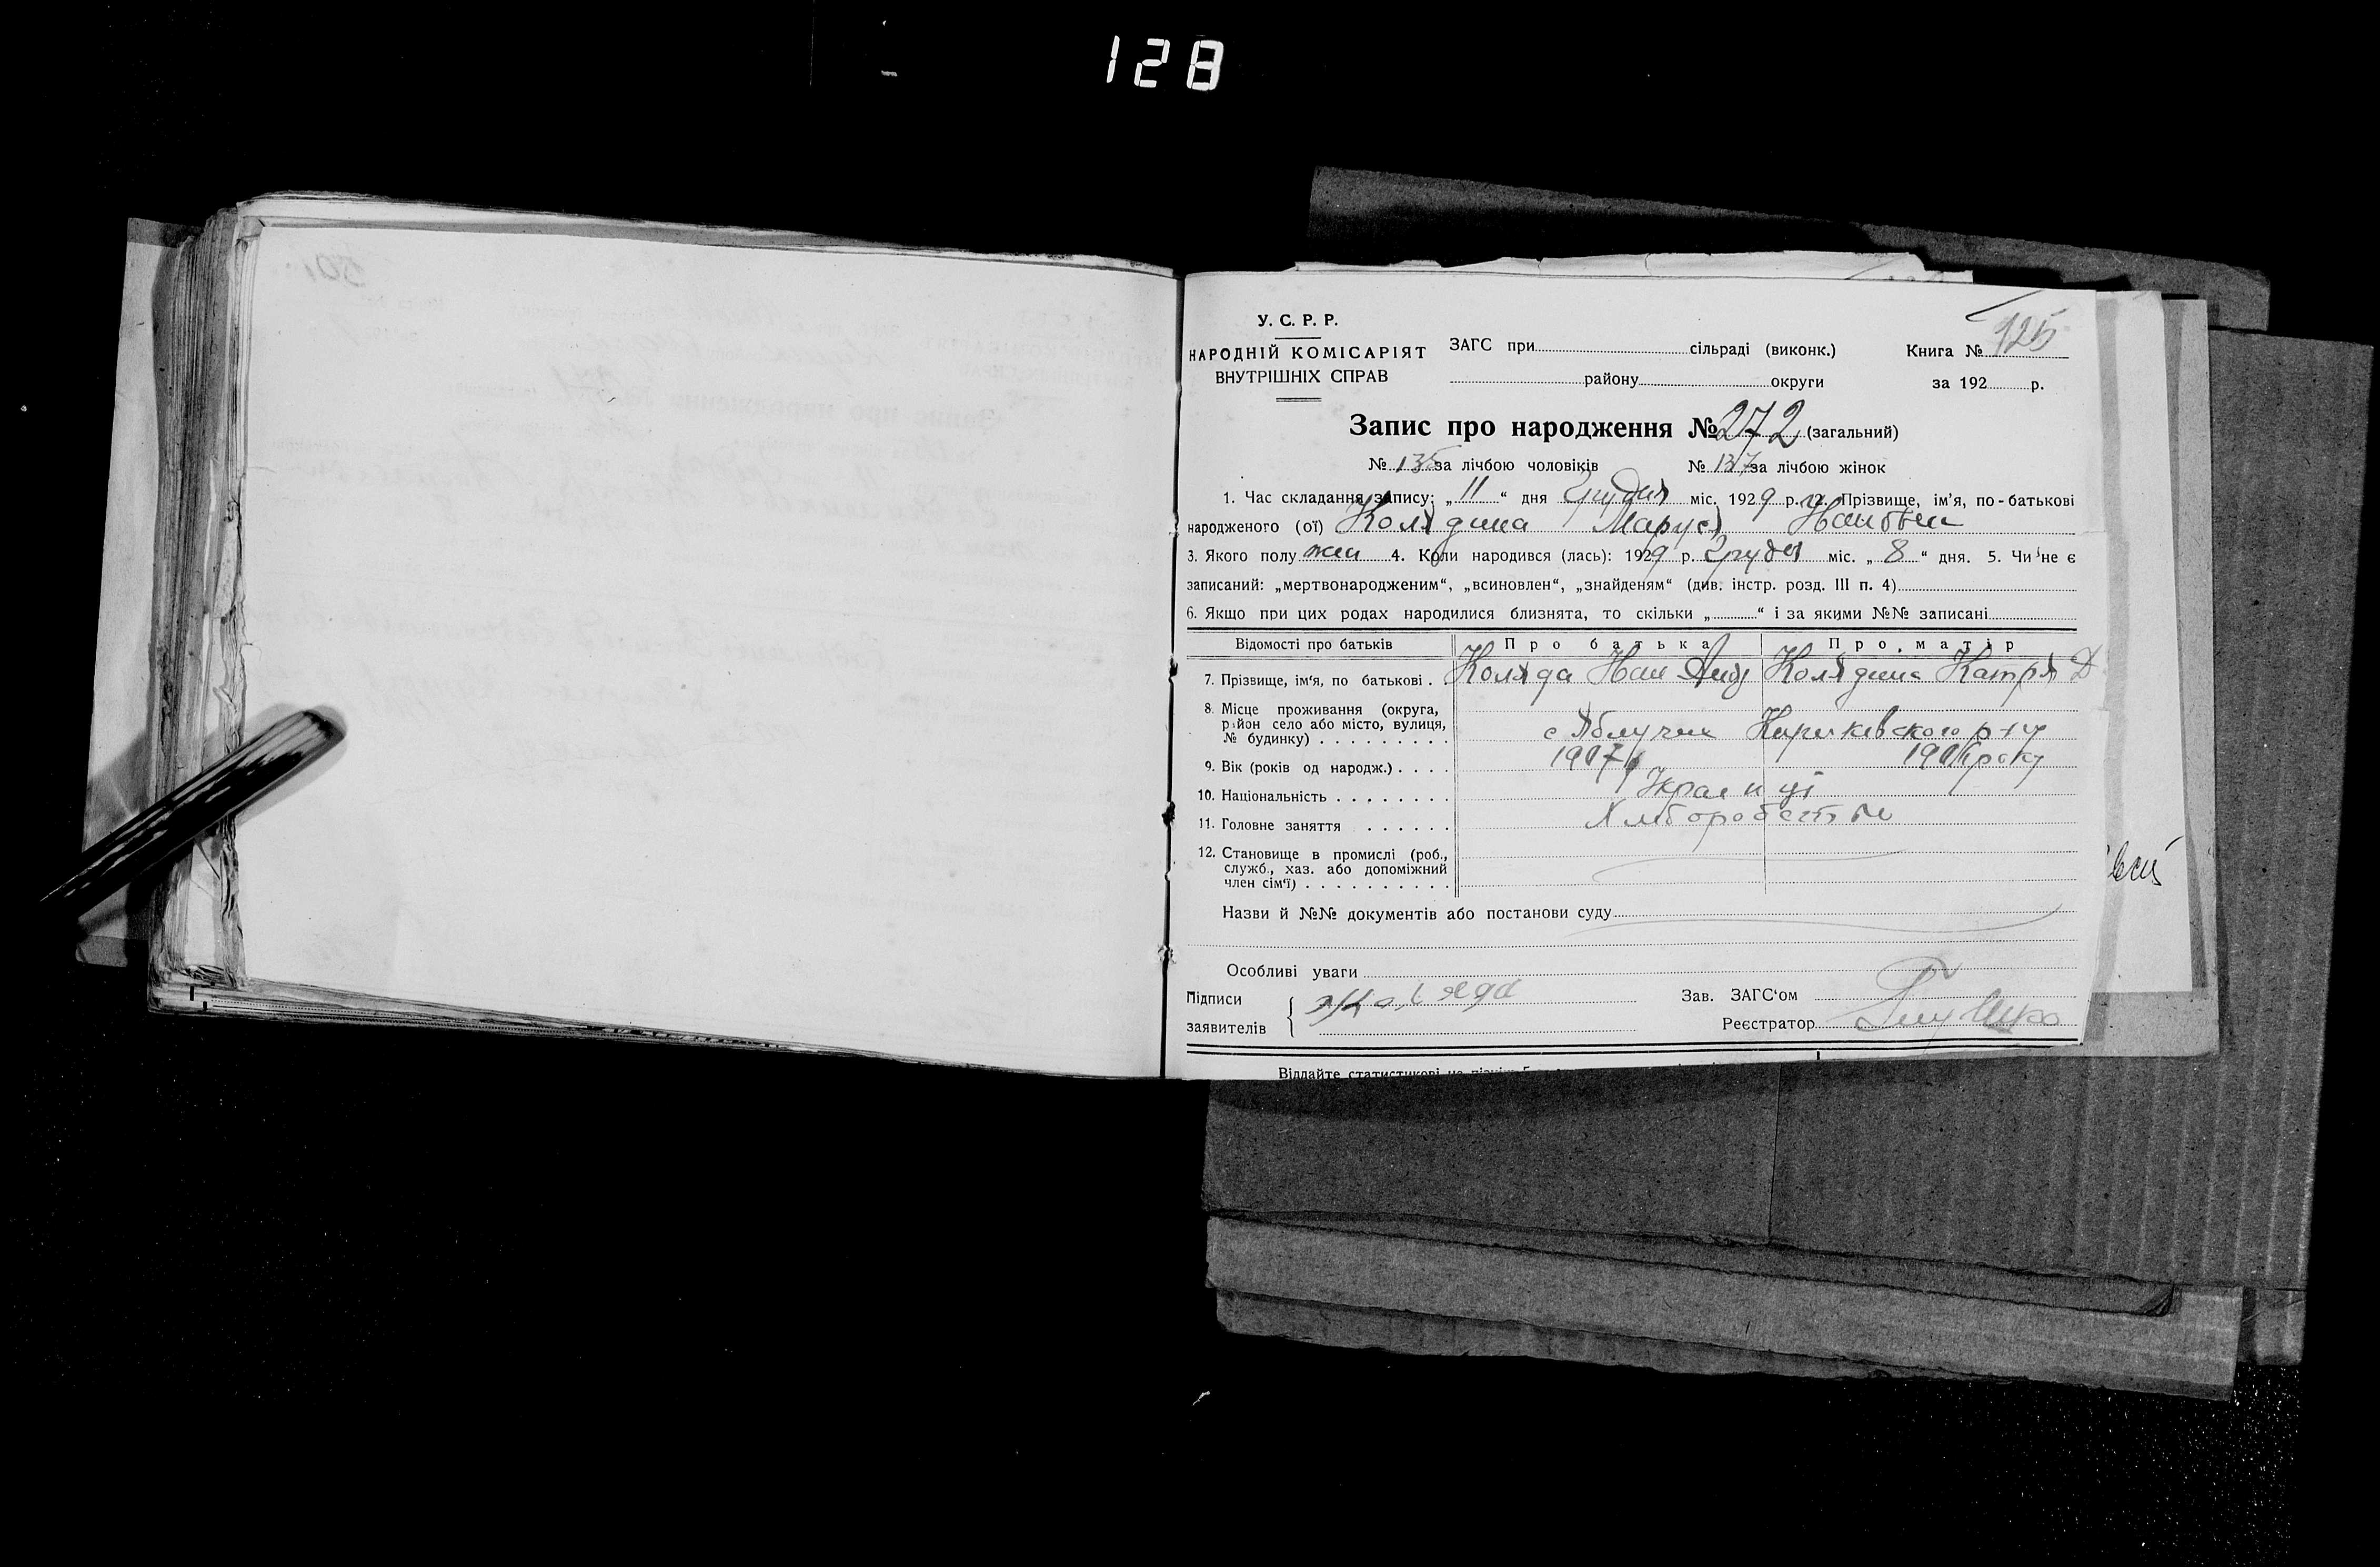 128
У. С. Р. Р.
НАРОДНІЙ КОМІСАРІЯТ
ВНУТРІШНІХ СПРАВ
ЗАГС при сільраді (виконк.)
району округи
Книга № 125
за 192 р.
Запис про народження № 272 (загальний)
№ 135 за лічбою чоловіків № 137 за лічбою жінок
1. Час складання запису: „ 11 “ дня Грудня міс. 1929 р. 2. Прізвище, ім'я, по-батькові
народженого (ої) Колядина Маруся
3. Якого полу жен 4. Коли народився (лась): 1929 р. Грудня міс. „ 8 “ дня. 5. Чи не є
записаний: „мертвонародженим“, „всиновлен“, „знайденям“ (див. інстр. розд. III п. 4)
6. Якщо при цих родах народилися близнята, то скільки „ “ і за якими №№ записані
Відомості про батьків Про батька Про матір
7. Прізвище, ім'я, по батькові . Коляда Иван Колядина Катря Д
8. Місце проживання (округа,
район село або місто, вулиця,
№ будинку) . . . . . . . . . с Яблучне р-ну
9. Вік (років од народж.) . . . . 1907 року
10. Національність . . . . . . . . Украинці
11. Головне заняття . . . . . .
12. Становище в промислі (роб.,
служб., хаз. або допоміжний
член сім'ї) . . . . . . . . . .
Назви й №№ документів або постанови суду
Особливі уваги
Підписи
заявителів
Коляда
Зав. ЗАГС'ом
Реєстратор
Віддайте статистикові